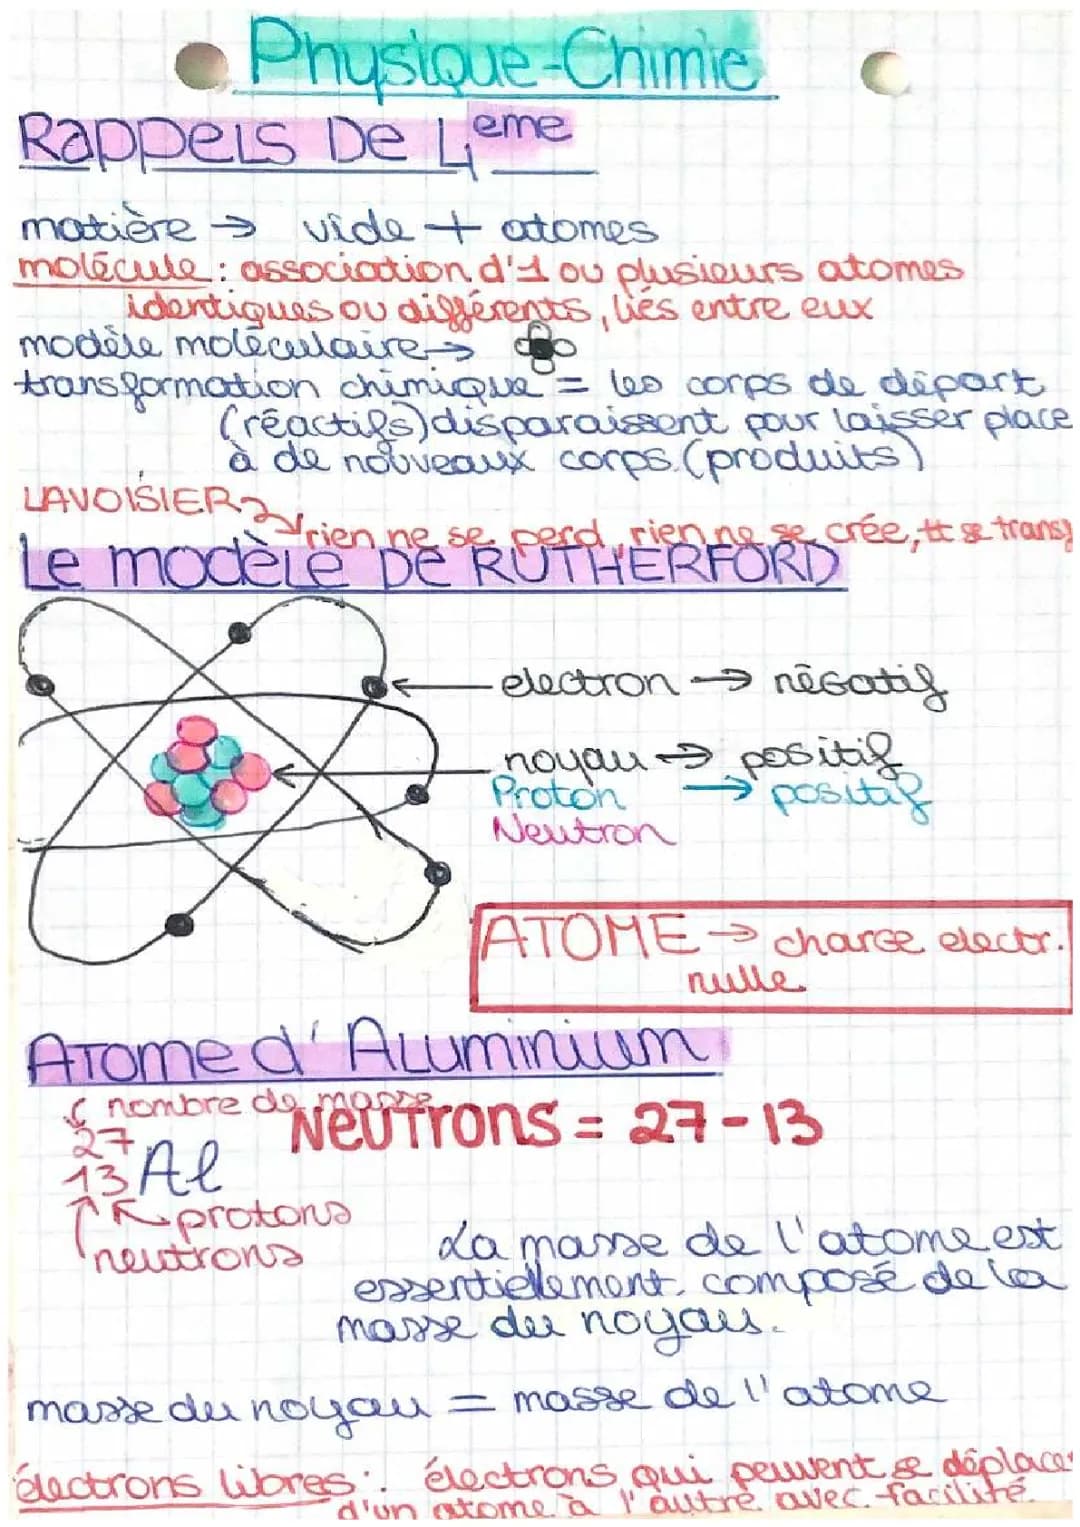 Physique-Chimie
Rappels De 4eme
matière → vide + atomes
molécule : association d'1 ou plusieurs atomes
identiques ou différents, liés entre eux
modèle moléculaire →
transformation chimique = les corps de départ
(réactifs) disparaissent pour laisser place
à de nouveaux corps. (produits)
LAVOISIER
rien ne se perd, rien ne se crée, tt se transf
Le modèle De RUTHERFORD
electron → négatif
noyau → positif
Proton → positif
Neutron
ATOME → charge electr.
nulle.
Atome d'Aluminium
nombre de masse
Neutrons = 27-13
27
13 Al
protons
neutrons
La masse de l'atome est
essentiellement. composé de la
masse du noyau.
masse du noyau = masse de l'atome
électrons libres : électrons qui peuvent se déplacer
d'un atome à l'autre avec facilité.